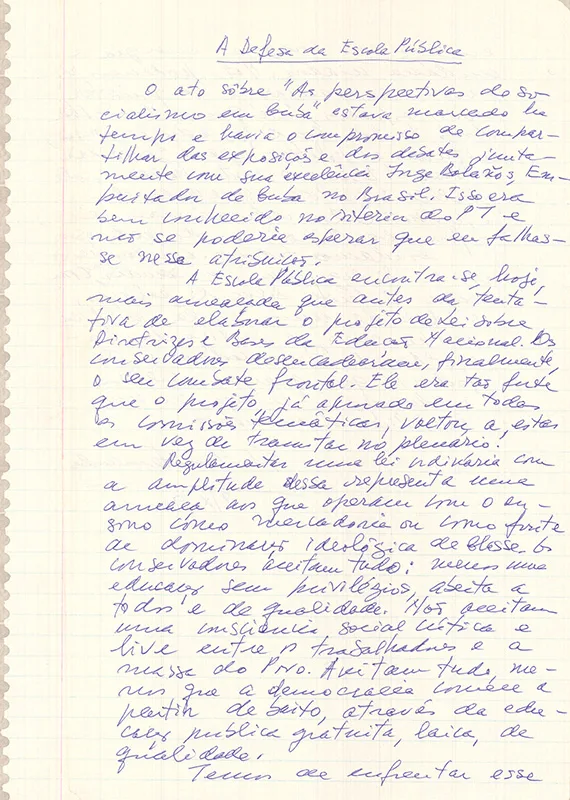 A Defesa da Escola Pública
O ato sôbre "As perspectivas do so-
cialismo em Cuba" estava marcado há
tempo e havia o compromisso de compar-
tilhar das exposições e dos debates junta-
mente com sua excelência Jorge Bolaños, Em-
baixador de Cuba no Brasil. Isso era
bem conhecido no interior do PT e
não se poderia esperar que eu falhas-
se nessa
A Escola Pública encontra-se, hoje,
mais ameaçada que antes da tenta-
tiva de elaborar o projeto de Lei sobre
Diretrizes e Bases da Educação Nacional. Os
conservadores desencadearam, finalmente,
o seu combate frontal. Ele era tão forte
que o projeto, já aprovado em todas
as comissões temáticas, voltou a estas
em vez de tramitar no plenário!
Regulamentar uma lei ordinária com
a amplitude dessa representa uma
ameaça aos que operam com o en-
sino como mercadoria ou como fonte
de dominação ideológica de classe. Os
conservadores aceitam tudo: menos uma
educação sem privilégios, aberta a
todos e de qualidade. Não aceitam
uma consciência social crítica e
livre entre os trabalhadores e a
massa do Povo. Aceitam tudo, me-
nos que a democracia comece a
partir de baixo, através da edu-
cação pública gratuita, laica, de
qualidade.
Temos de enfrentar esse